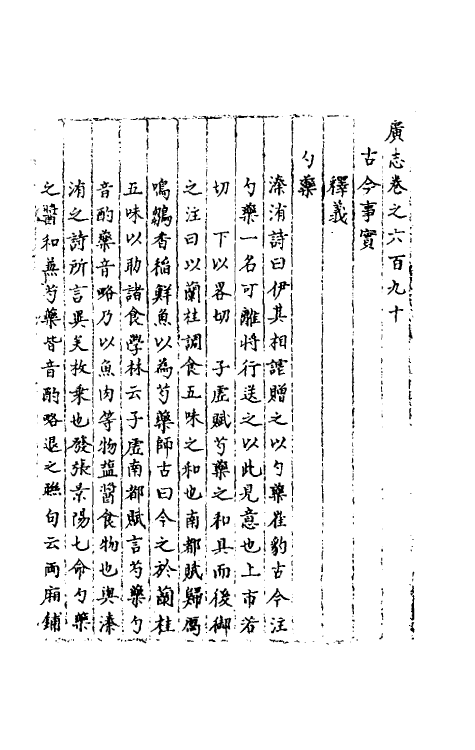 廣志卷之六百九十
古今事實
釋義
勺藥
溱洧詩曰伊其相謔贈之以勺藥崔豹古今注
勺藥一名可離將行送之以此見意也上市若
切　下以畧切　子虛賦芍藥之和具而後御
之注曰以蘭桂調食五味之和也南都賦歸鴈
鳴鵽香稻鮮魚以為芍藥師古曰今之於蘭桂
五味以助諸食學林云子虛南都賦言芍藥勺
音酌藥音略乃以魚肉等物鹽醬食物也與溱
洧之詩所言異矣枚乘七發張景陽七命勺藥
之醬和無芍藥皆音酌略退之聮句云兩廂鋪